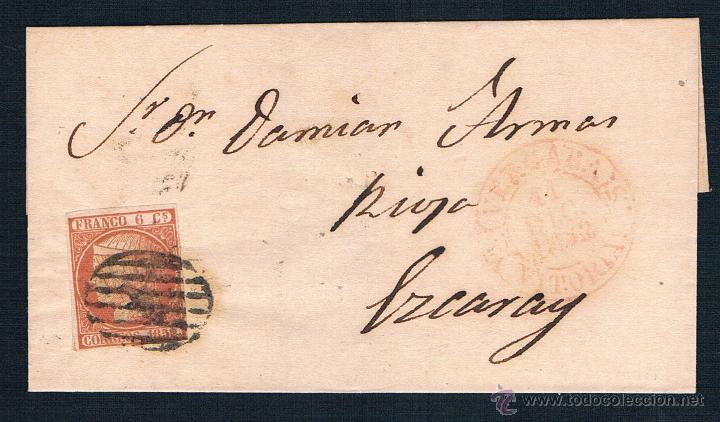 Sr. Dn. Damian Armas
Rioja
Ezcaray
FRANCO 6 Cs
CORREOS 185
VITORIA
www.todocoleccion.net